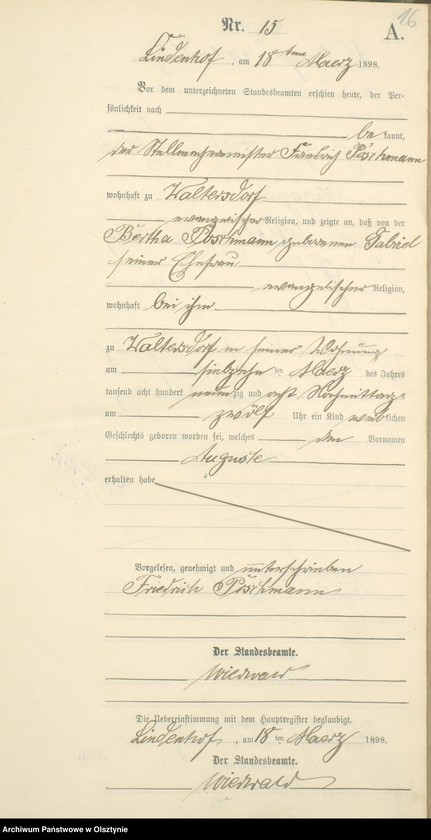 16
Nr. 15
A.
Lindenhof, am 18ten Maerz 1898.
Vor dem unterzeichneten Standesbeamten erschien heute, der Per-
sönlichkeit nach
bekannt,
der Stellmachermeister Friedrich Pöschmann
wohnhaft zu Waltersdorf
evangelischer Religion, und zeigte an, daß von der
Bertha Pöschmann geborenen Gabriel
seiner Ehefrau
evangelischer Religion,
wohnhaft bei ihm
zu Waltersdorf in seiner Wohnung
am siebzehn ten Maerz des Jahres
tausend acht hundert neunzig und acht Nachmittags
um zwölf Uhr ein Kind weiblichen
Geschlechts geboren worden sei, welches den Vornamen
Auguste
erhalten habe
Vorgelesen, genehmigt und unterschrieben
Friedrich Pöschmann
Der Standesbeamte.
Wiedwald
Die Uebereinstimmung mit dem Hauptregister beglaubigt.
Lindenhof, am 18ten Maerz 1898.
Der Standesbeamte.
Wiedwald
Archiwum Państwowe w Olsztynie